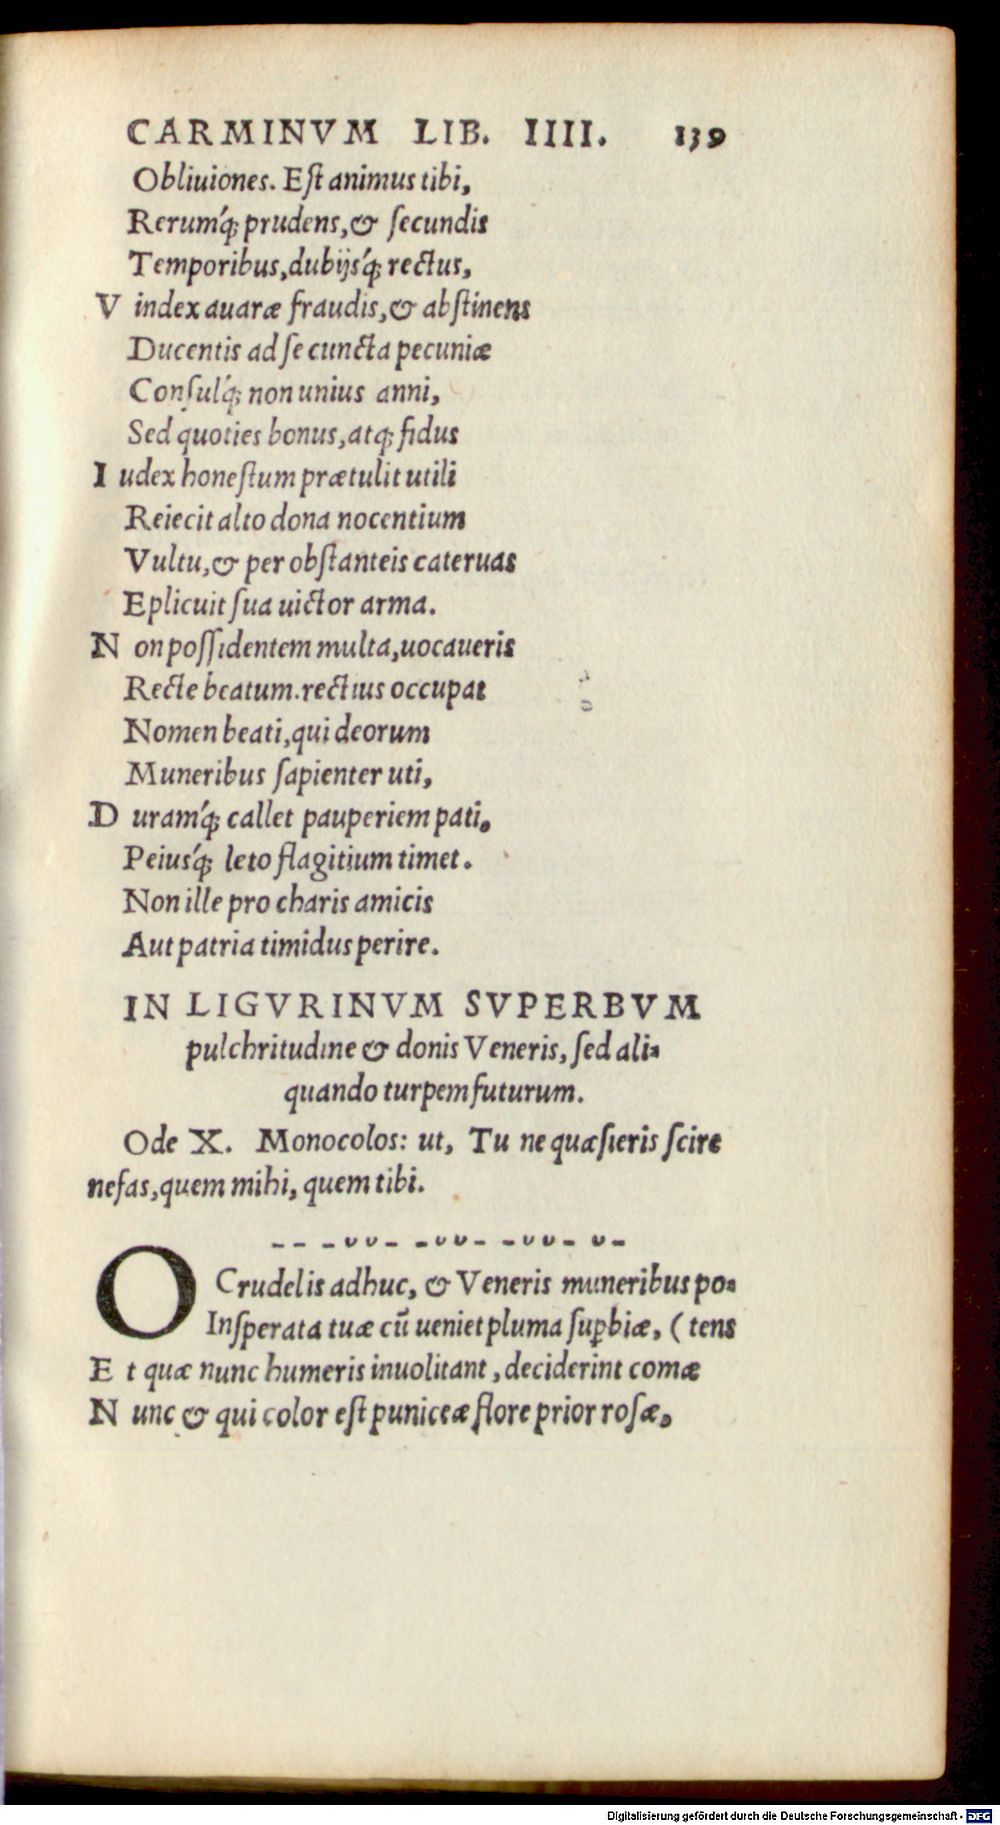 CARMINVM LIB. IIII. 139
Obliuiones. Est animus tibi,
Rerumq́; prudens, & secundis
Temporibus, dubijsq́; rectus,
V index auaræ fraudis, & abstinens
Ducentis ad se cuncta pecuniæ
Consulq́; non unius anni,
Sed quoties bonus, atq; fidus
I udex honestum prætulit utili
Reiecit alto dona nocentium
Vultu, & per obstanteis cateruas
Eplicuit sua uictor arma.
N on possidentem multa, uocaueris
Recte beatum. rectius occupat
Nomen beati, qui deorum
Muneribus sapienter uti,
D uramq́; callet pauperiem pati,
Peiusq́; leto flagitium timet.
Non ille pro charis amicis
Aut patria timidus perire.
IN LIGVRINVM SVPERBVM
pulchritudine & donis Veneris, sed ali-
quando turpem futurum.
Ode X. Monocolos: ut, Tu ne quæsieris scire
nefas, quem mihi, quem tibi.
-- -υυ- -υυ- -υυ- υ-
O Crudelis adhuc, & Veneris muneribus po-
Insperata tuæ cū ueniet pluma sup̱biæ, ( tens
E t quæ nunc humeris inuolitant, deciderint comæ
N unc & qui color est puniceæ flore prior rosæ,
Digitalisierung gefördert durch die Deutsche Forschungsgemeinschaft - DFG